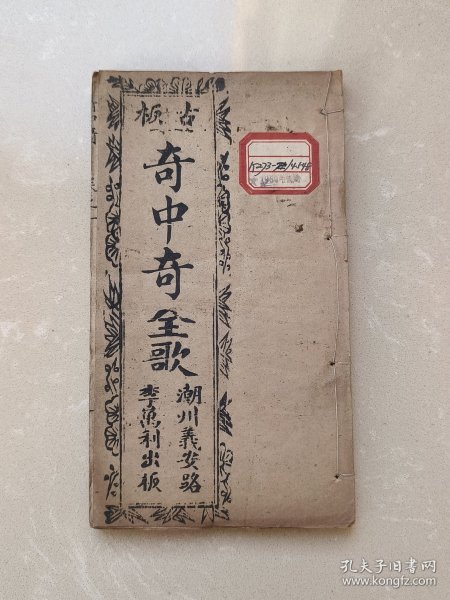 古板
奇中奇全歌
潮州義安路
李萬利出板
孔夫子旧书网
www.kongfz.com